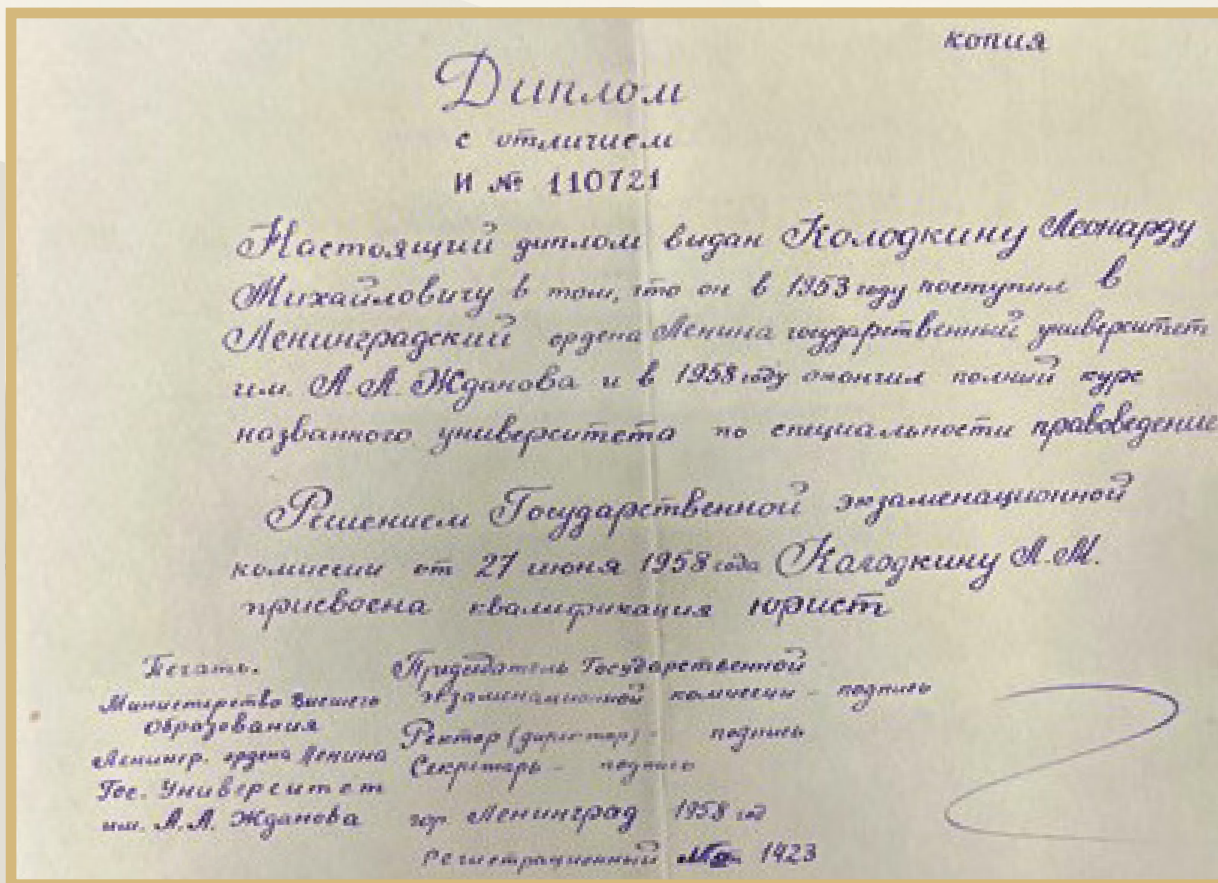 копия
Диплом
с отличием
И № 110721
Настоящий диплом выдан Колодкину Леонарду
Михайловичу в том, что он в 1953 году поступил в
Ленинградский ордена Ленина государственный университет
им. А.А. Жданова и в 1958 году окончил полный курс
названного университета по специальности правоведение
Решением Государственной экзаменационной
комиссии от 27 июня 1958 года Колодкину Л.М.
присвоена квалификация юрист
Печать.
Министерство Высшего
образования
Ленингр. ордена Ленина
Гос. Университет
им. А.А. Жданова
Председатель Государственной
экзаминационной комиссии - подпись
Ректор (директор) - подпись
Секретарь - подпись
гор. Ленинград 1958 год
Регистрационный № 1423